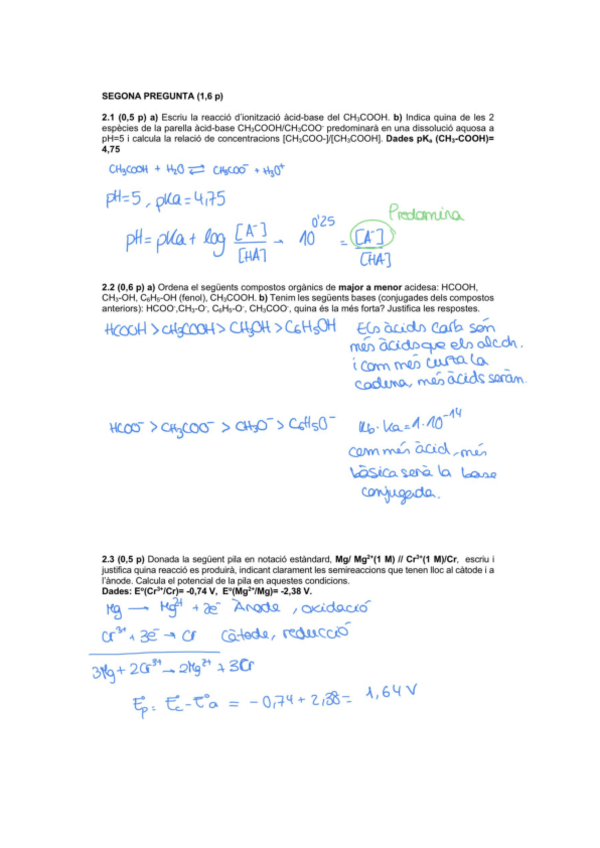 SEGONA PREGUNTA (1,6 p)
2.1 (0,5 p) a) Escriu la reacció d'ionització àcid-base del CH₃COOH. b) Indica quina de les 2
espècies de la parella àcid-base CH₃COOH/CH₃COO⁻ predominarà en una dissolució aquosa a
pH=5 i calcula la relació de concentracions [CH₃COO-]/[CH₃COOH]. Dades pKₐ (CH₃-COOH)=
4,75
CH₃COOH + H₂O ⇌ CH₃COO⁻ + H₃O⁺
pH=5, pKa=4,75
Predomina
pH= pKa + log [A⁻]/[HA] → 10^0'25 = [A⁻]/[HA]
2.2 (0,6 p) a) Ordena el següents compostos orgànics de major a menor acidesa: HCOOH,
CH₃-OH, C₆H₅-OH (fenol), CH₃COOH. b) Tenim les següents bases (conjugades dels compostos
anteriors): HCOO⁻,CH₃-O⁻, C₆H₅-O⁻, CH₃COO⁻, quina és la més forta? Justifica les respostes.
HCOOH > CH₃COOH > CH₃OH > C₆H₅OH
Els àcids carb són
més àcids que els alcoh.
i com més curta la
cadena, més àcids seràn.
HCOO⁻ > CH₃COO⁻ > CH₃O⁻ > C₆H₅O⁻
Kb · Ka = 1·10⁻¹⁴
com més àcid, més
bàsica serà la base
conjugada.
2.3 (0,5 p) Donada la següent pila en notació estàndard, Mg/ Mg²⁺(1 M) // Cr³⁺(1 M)/Cr, escriu i
justifica quina reacció es produirà, indicant clarament les semireaccions que tenen lloc al càtode i a
l'ànode. Calcula el potencial de la pila en aquestes condicions.
Dades: Eº(Cr³⁺/Cr)= -0,74 V, Eº(Mg²⁺/Mg)= -2,38 V.
Mg → Mg²⁺ + 2e⁻ Ànode, oxidació
Cr³⁺ + 3e⁻ → Cr Càtode, reducció
3Mg + 2Cr³⁺ → 2Mg²⁺ + 3Cr
Ep = E°c - E°a = -0,74 + 2,38 = 1,64 V